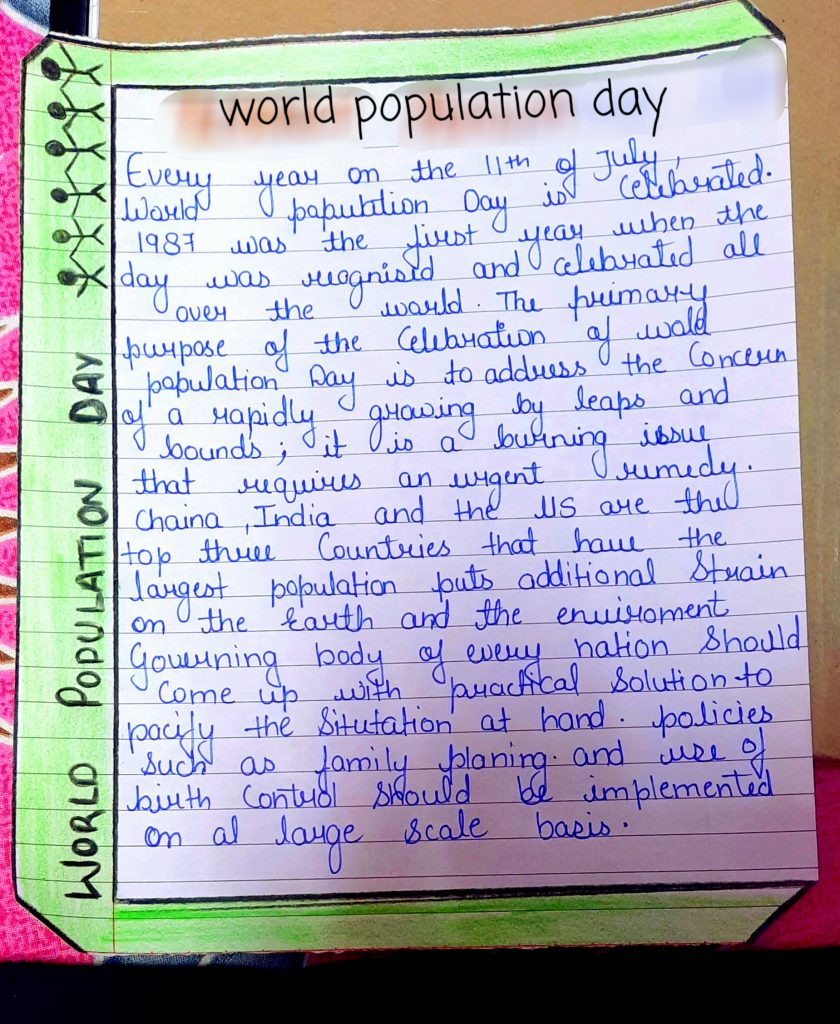 world population day
Every year on the 11th of July,
World papulation Day is celebrated.
1987 was the first year when the
day was recognisid and celebrated all
over the world. The primary
purpose of the Celebration of wold
population Day is to address the Concern
of a rapidly growing by leaps and
bounds; it is a burning issue
that requires an urgent remedy.
Chaina, India and the US are the
top three Countries that have the
largest population puts additional Strain
on the Earth and the enviroment
Governing body of every nation Should
Come up with practical Solution to
pacify the Situtation at hand. policies
Such as family planing. and use of
birth Control Should be implemented
on al large scale basis.
WORLD POPULATION DAY